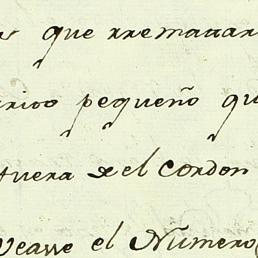 que rrematar
pequeño qu
fuera del Cordon
Vease el Numero